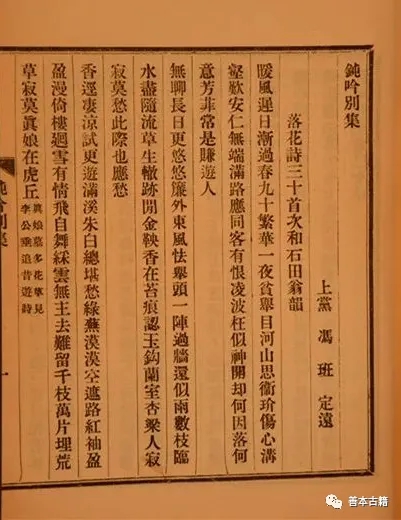 鈍吟別集
上黨 馮班 定遠
落花詩三十首次和石田翁韻
暖風遲日漸過春九十繁華一夜貧舉目河山思衞玠傷心溝
壑歎安仁無端滿路應同客有恨凌波枉似神開却何因落何
意芳菲常是賺遊人
無聊長日更悠悠簾外東風怯舉頭一陣過牆還似雨數枝臨
水盡隨流草生轍跡閒金鞅香在苔痕認玉鈎蘭室杏梁人寂
寂莫愁此際也應愁
香逕凄涼試更遊滿溪朱白總堪愁綠蕪漠漠空遮路紅袖盈
盈漫倚樓遇雪有情飛自舞綵雲無主去難留千枝萬片埋荒
草寂莫眞娘在虎丘眞娘墓多花草見李公垂追昔遊詩
鈍吟別集
一
善本古籍